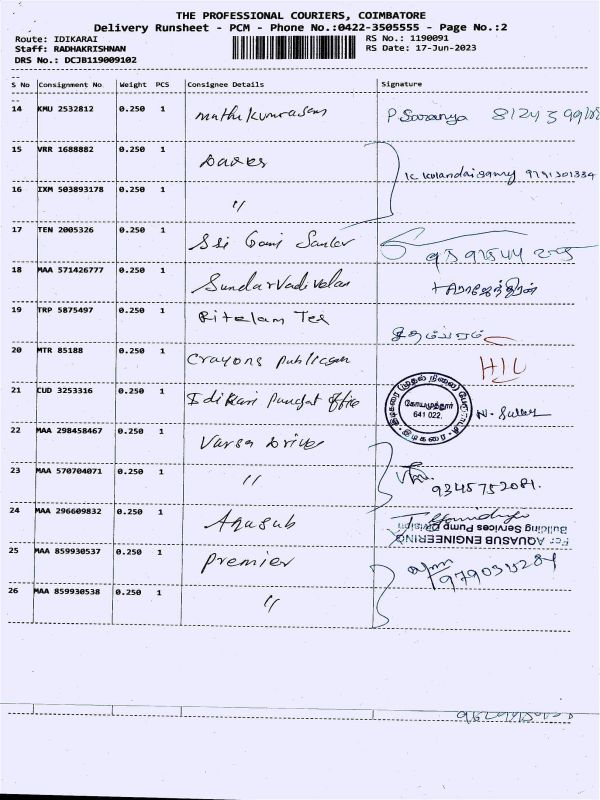 THE PROFESSIONAL COURIERS, COIMBATORE
Delivery Runsheet - PCM - Phone No.:0422-3505555 - Page No.:2
Route: IDIKARAI
RS No.: 1190091
Staff: RADHAKRISHNAN
RS Date: 17-Jun-2023
DRS No.: DCJB119009102
S No Consignment No Weight PCS Consignee Details Signature
14 KMU 2532812 0.250 1 muthukumrasam P Saranya
15 VRR 1688882 0.250 1
16 IXM 503893178 0.250 1 〃 K Kulandaisamy 9791301334
17 TEN 2005326 0.250 1 Sri
18 MAA 571426777 0.250 1 Sundarvadivelan
19 TRP 5875497 0.250 1
20 MTR 85188 0.250 1 Crayons publicasan HIL
21 CUD 3253316 0.250 1 Idikarai Office
கோயமுத்தூர்
641 022.
22 MAA 298458467 0.250 1 Varsa Drive
23 MAA 570704071 0.250 1 〃 9345752081.
24 MAA 296609832 0.250 1 Aquasub
For AQUASUB ENGINEERING
Building Services Pump Division
25 MAA 859930537 0.250 1 Premier
26 MAA 859930538 0.250 1 〃